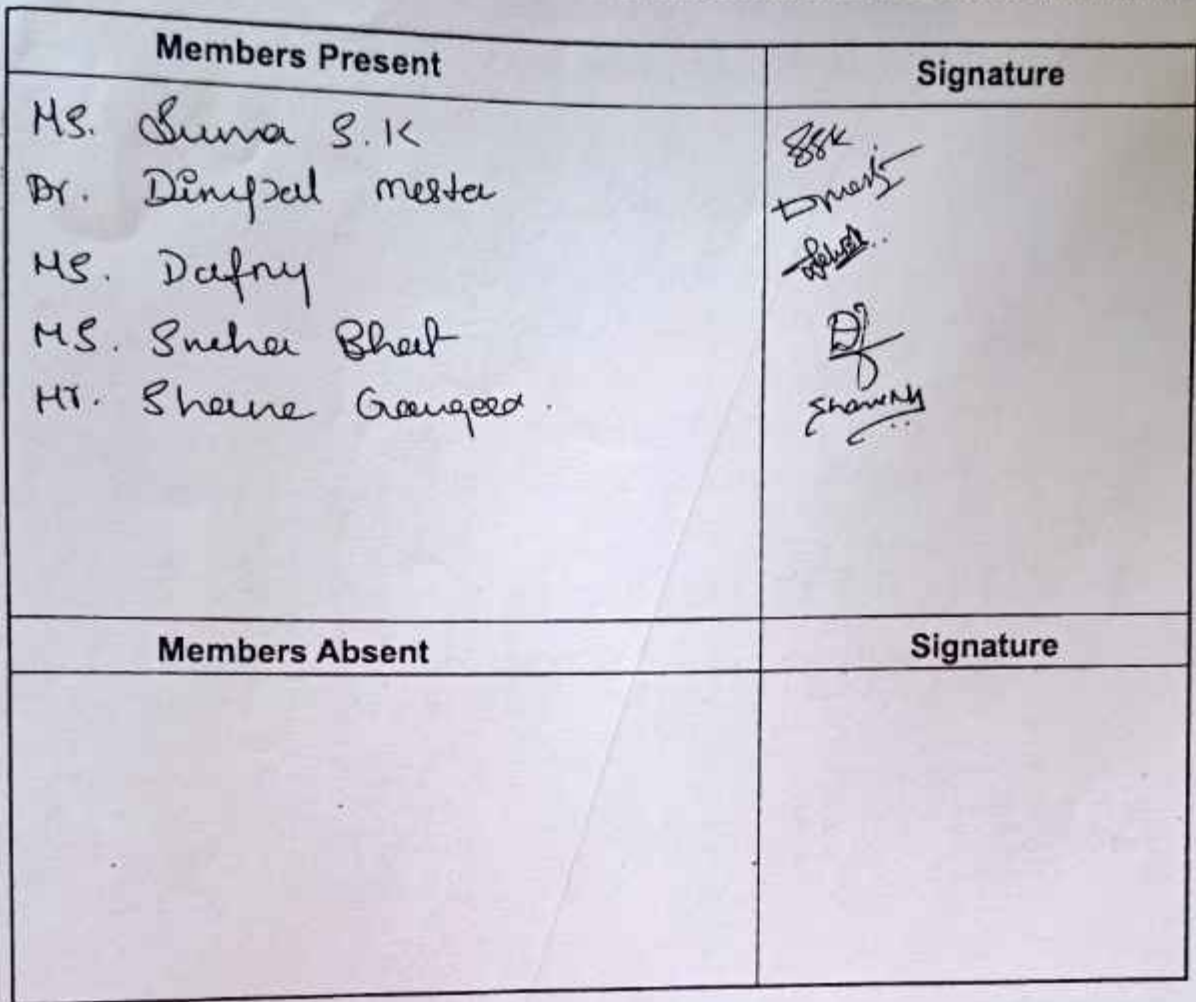 Members Present Signature
Ms. Suma S.K SSK
Dr. Dimpal Mesta
Ms. Dafny
Ms. Sneha Bhat
Mr. Shawn
Members Absent Signature